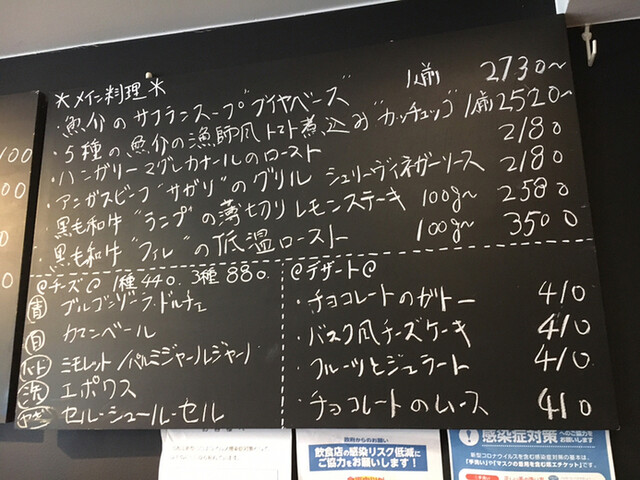 *メイン料理*
・魚介のサフランスープ"ブイヤベース" 1人前 2730~
・5種の魚介の漁師風トマト煮込み"カッチュッコ" 1人前 2520~
・ハンガリーマグレカナールのロースト 2180
・アンガスビーフ"サガリ"のグリル シェリーヴィネガーソース 2180
・黒毛和牛"ランプ"の薄切りレモンステーキ 100g~ 2580
・黒毛和牛"フィレ"の低温ロースト 100g~ 3500
@チーズ@ 1種440. 3種880.
青 ブルゴンゾーラ・ドルチェ
白 カマンベール
ハード ミモレット/パルミジャーノレジャーノ
洗 エポワス
ヤギ セル・シュール・セル
@デザート@
・チョコレートのガトー 410
・バスク風チーズケーキ 410
・フルーツとジェラート 410
・チョコレートのムース 410
飲食店の感染リスク低減に
ご協力をお願いします!
感染症対策